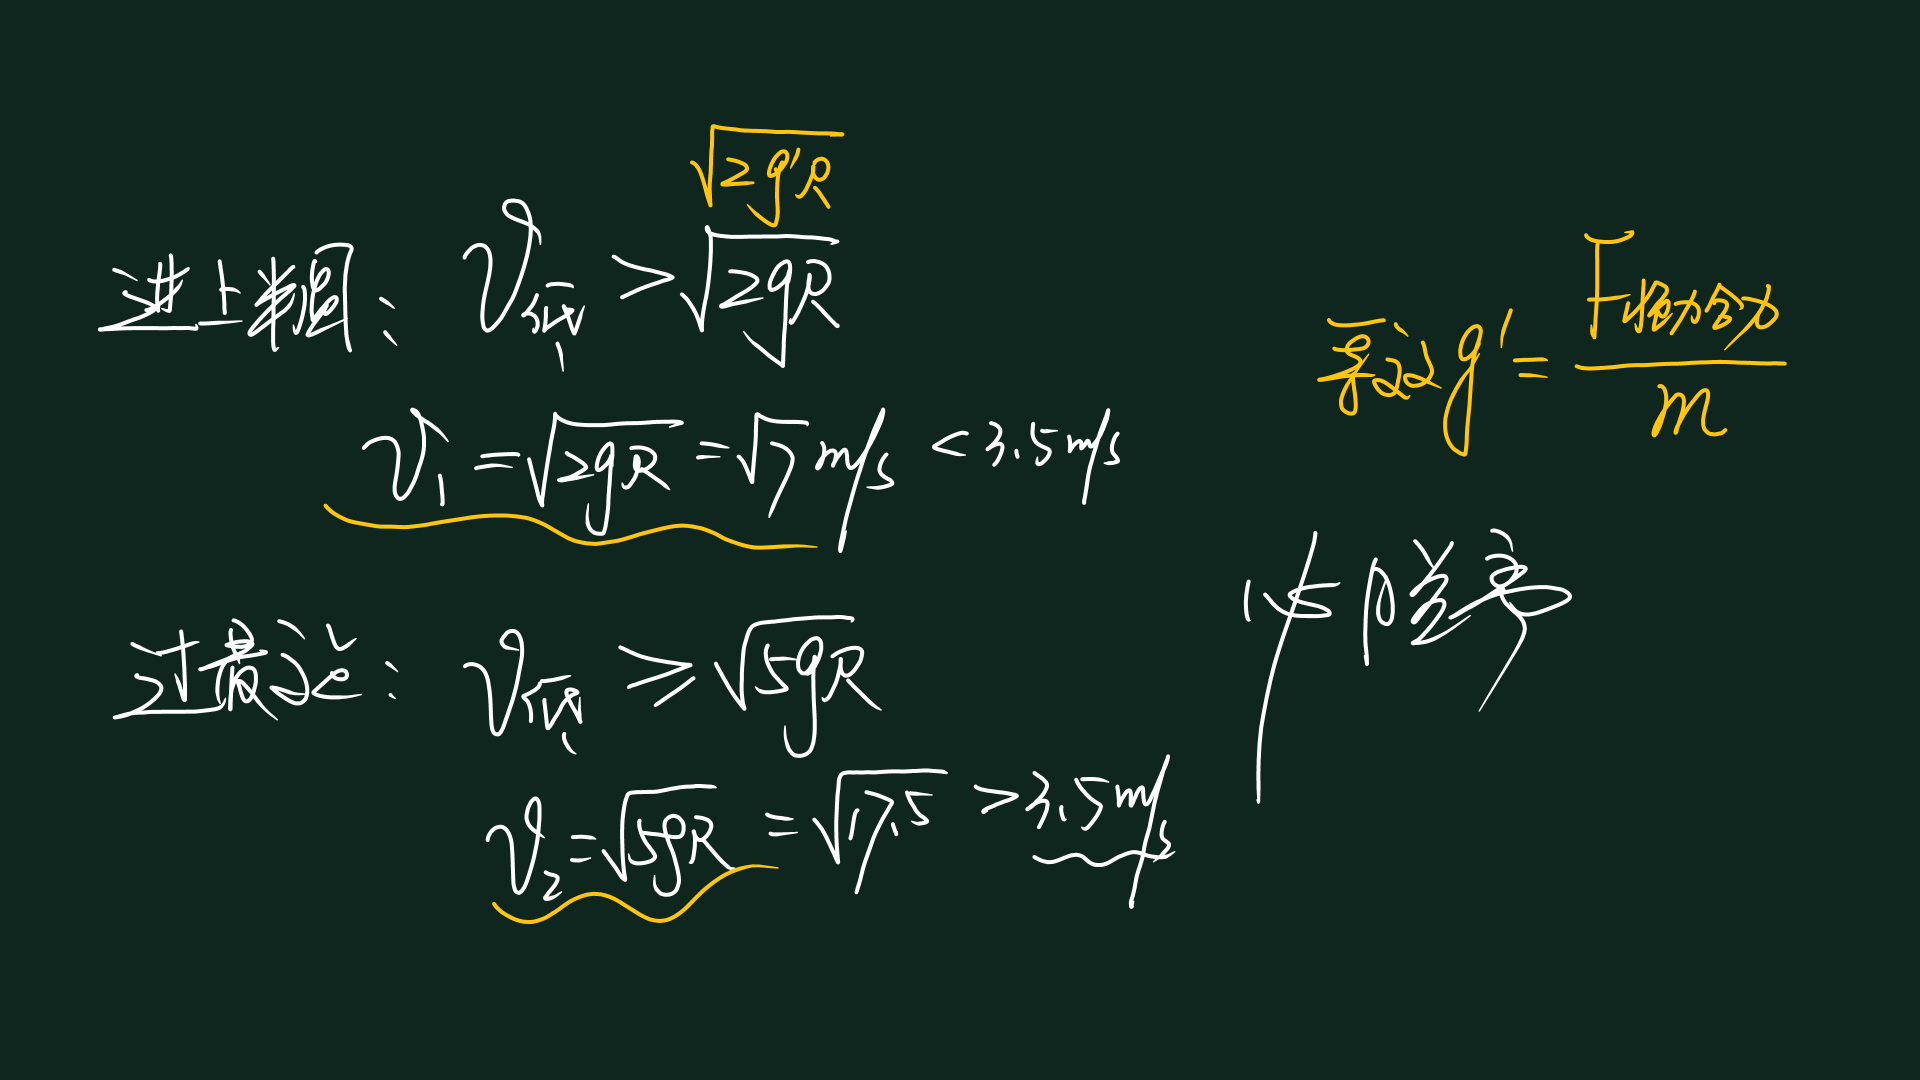 √2g′R
进上半圆： v低 > √2gR
v₁ = √2gR = √7 m/s < 3.5 m/s
等效 g′ = F恒力合力 / m
过最高点： v低 ≥ √5gR
v₂ = √5gR = √17.5 > 3.5 m/s